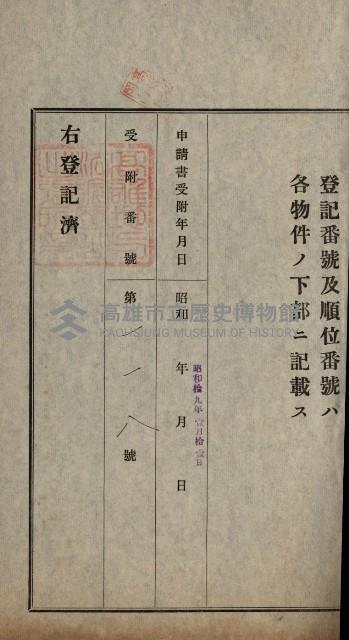 登記番號及順位番號ハ
各物件ノ下部ニ記載ス
申請書受附年月日 昭和 年 月 日
昭和拾九年壹月拾壹日
受附番號 第一八號
右登記濟
高雄市立歷史博物館
KAOHSIUNG MUSEUM OF HISTORY